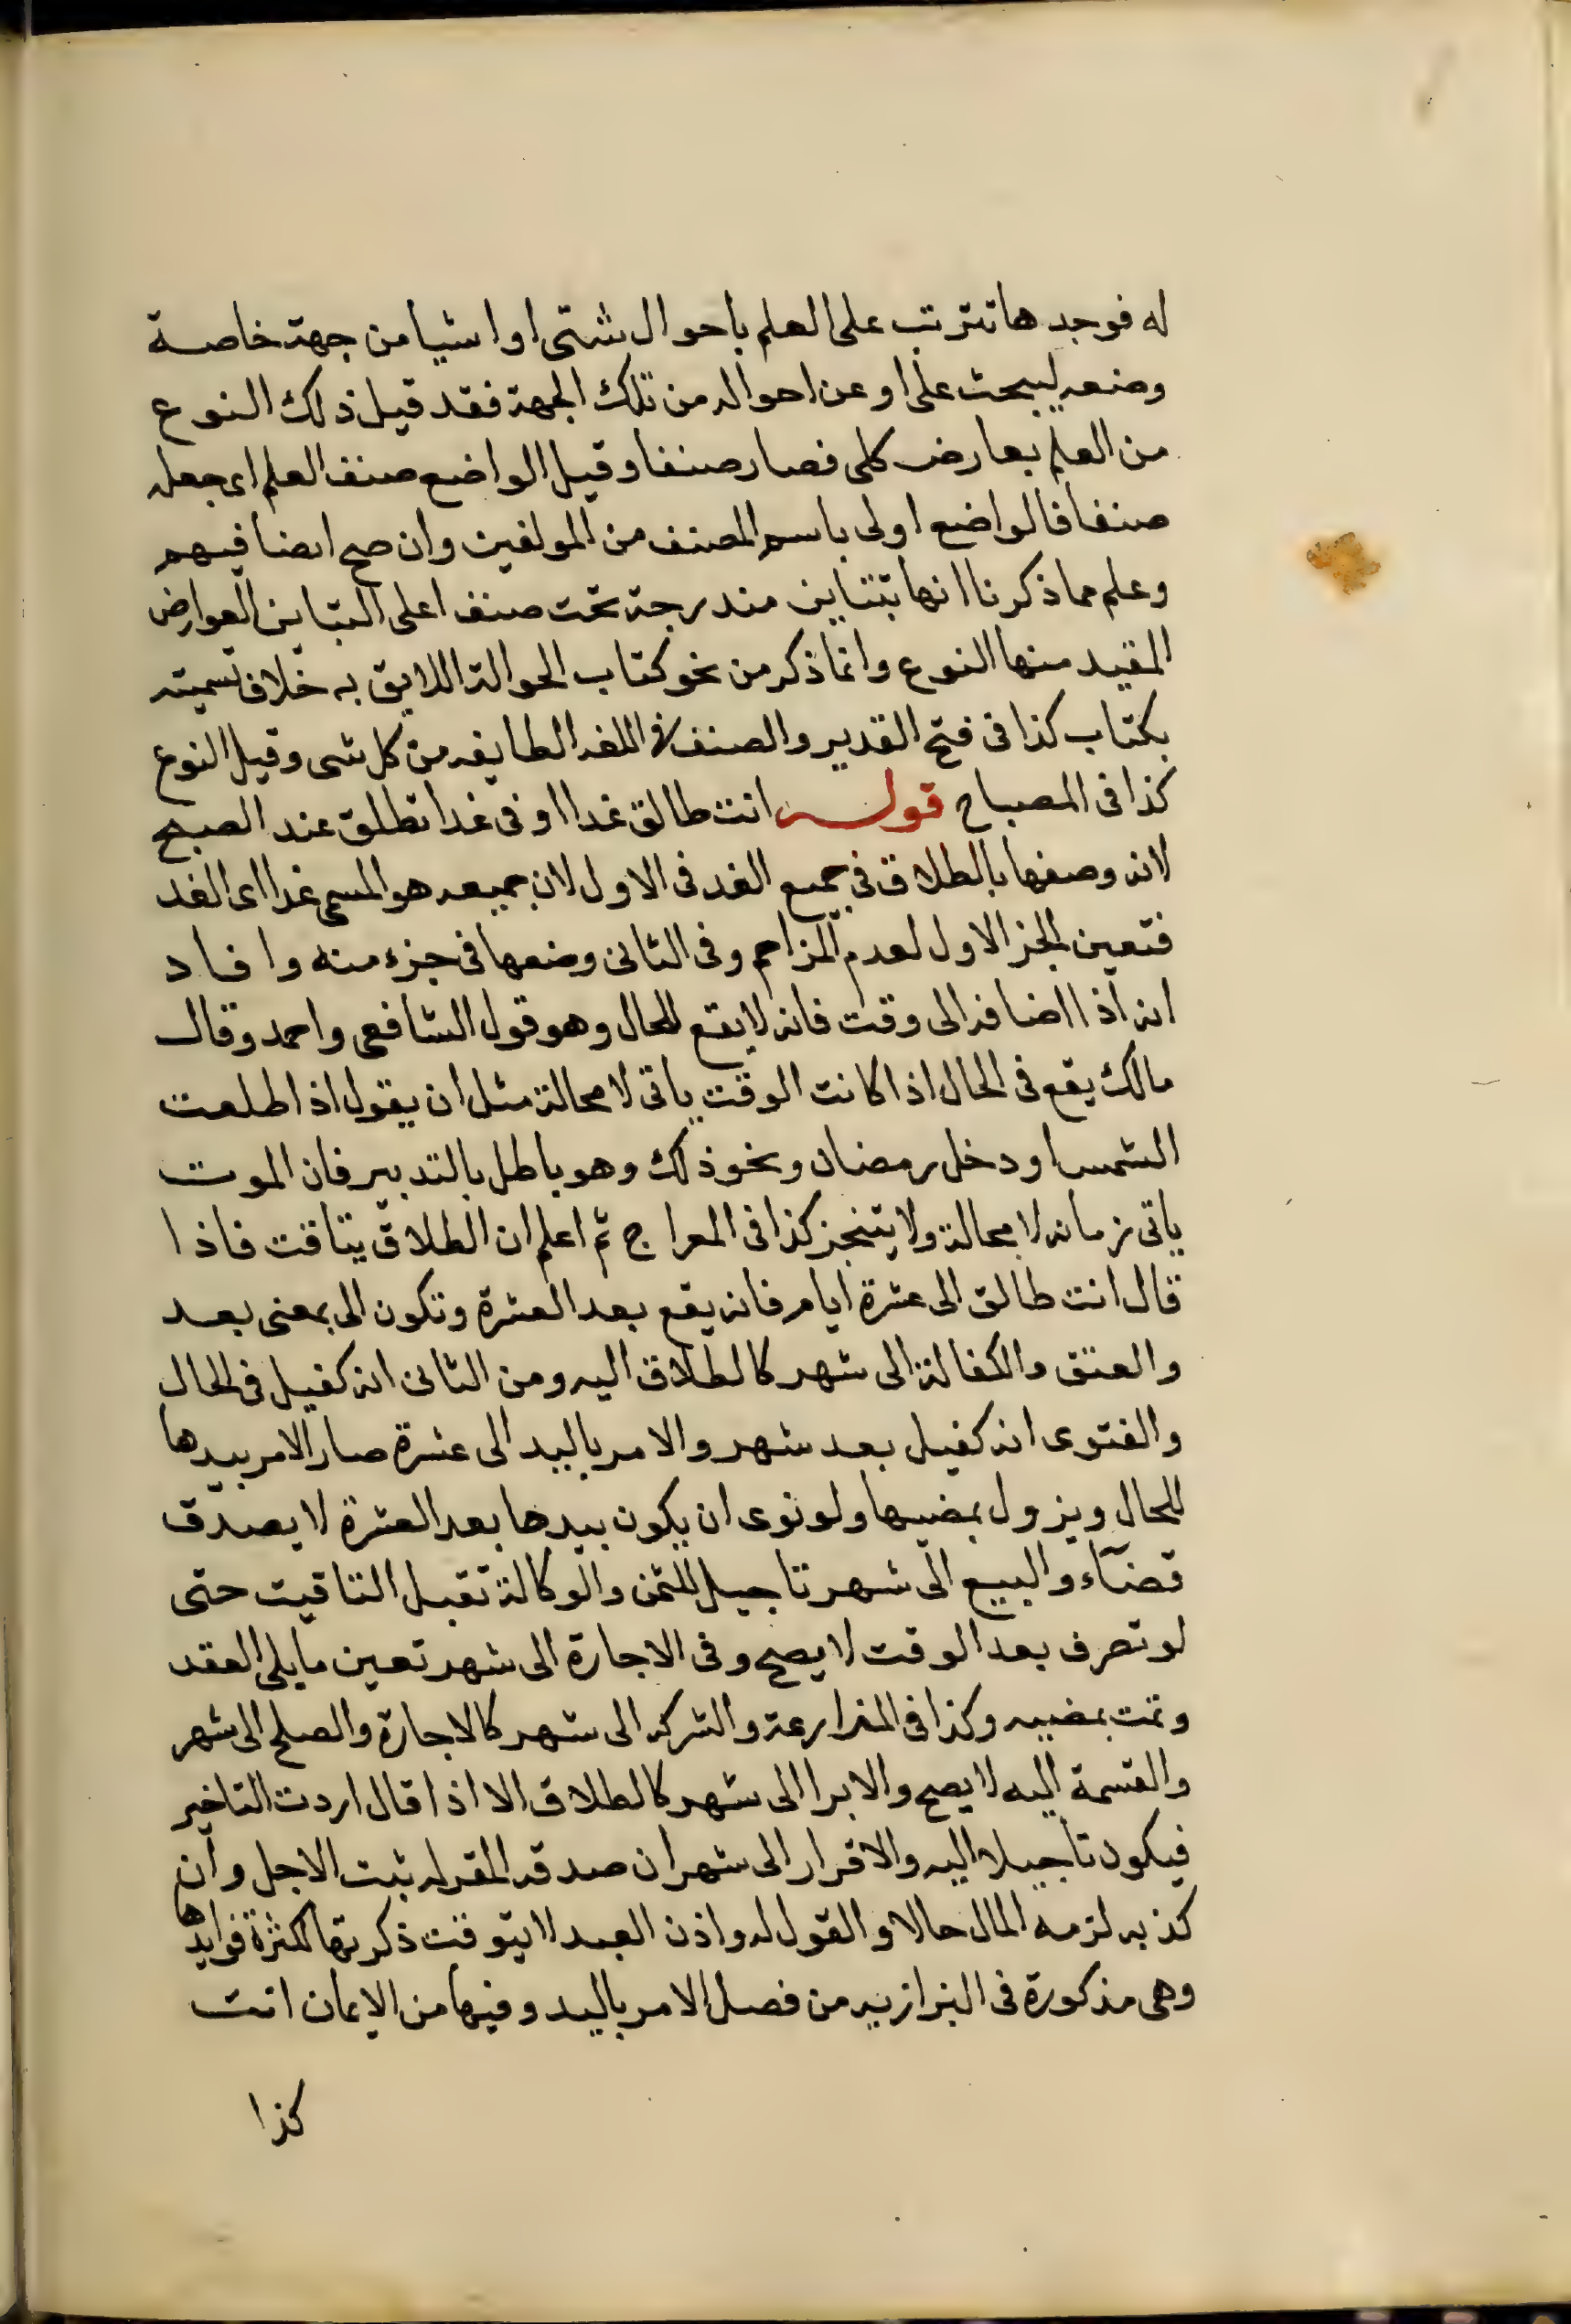 له فوجدها تترتب على العلم باحوال شتى او اشيا من جهة خاصة
وضعه ليبحث على او عن احواله من تلك الجهة فقد قيل ذلك النوع
من العلم بعارض كلى فصار صنفا وقيل الواضع صنف العلم اى جعله
صنفا فالواضع اولى باسم المصنف من المولفين وان صح ايضا فيهم
وعلم مما ذكرنا انها بتتباين مندرجة تحت صنف اعلى لتباين العوارض
المقيد منها النوع وانما ذكر من نحو كتاب الحوالة اللايق به خلاف تسميته
بكتاب كذا فى فتح القدير والصنف فى اللغه الطايفه من كل شى وقيل النوع
كذا فى المصباح قوله انت طالق غدا او فى غدا تطلق عند الصبح
لانه وصفها بالطلاق فى جميع الغد فى الاول لان جميعه هو المسمى غدا اى الغد
فتعين الجز الاول لعدم المزاحم وفى الثانى وضعها فى جزء منه وافاد
انه اذا اضافه الى وقت فانه لا يقع للحال وهو قول الشافعى واحمد وقال
مالك يقع فى الحال اذا كانت الوقت ياتى لا محالة مثل ان يقول اذا طلعت
الشمس او دخل رمضان ونحو ذلك وهو باطل بالتدبير فان الموت
ياتى زمانه لا محالة ولا يتنجز كذا فى المعراج ثم اعلم ان الطلاق يتاقت فاذا
قال انت طالق الى عشرة ايام فانه يقع بعد العشرة وتكون الى بمعنى بعد
والعتق والكفالة الى شهر كالطلاق اليه ومن الثانى انه كفيل فى الحال
والفتوى انه كفيل بعد شهر والامر باليد الى عشرة صار الامر بيدها
للحال ويزول بمضيها ولو نوى ان يكون بيدها بعد العشرة لا يصدق
قضآء والبيع الى شهر تاجيل للثمن والوكالة تقبل التاقيت حتى
لو تصرف بعد الوقت لا يصح وفى الاجارة الى شهر تعين ما يلى العقد
وتمت بمضيه وكذا فى المزارعة والشركه الى شهر كالاجارة والصلح الى شهر
والقسمة اليه لا يصح والابرا الى شهر كالطلاق الا اذا قال اردت التاخير
فيكون تاجيلا اليه والاقرار الى شهر ان صدقه المقر له ثبت الاجل وان
كذبه لزمه المال حالا والقول له واذن العبد لا يتوقت ذكرتها لكثرة فوايدها
وهى مذكورة فى البزازيه من فصل الامر باليد وفيها من الايمان انت
كذا